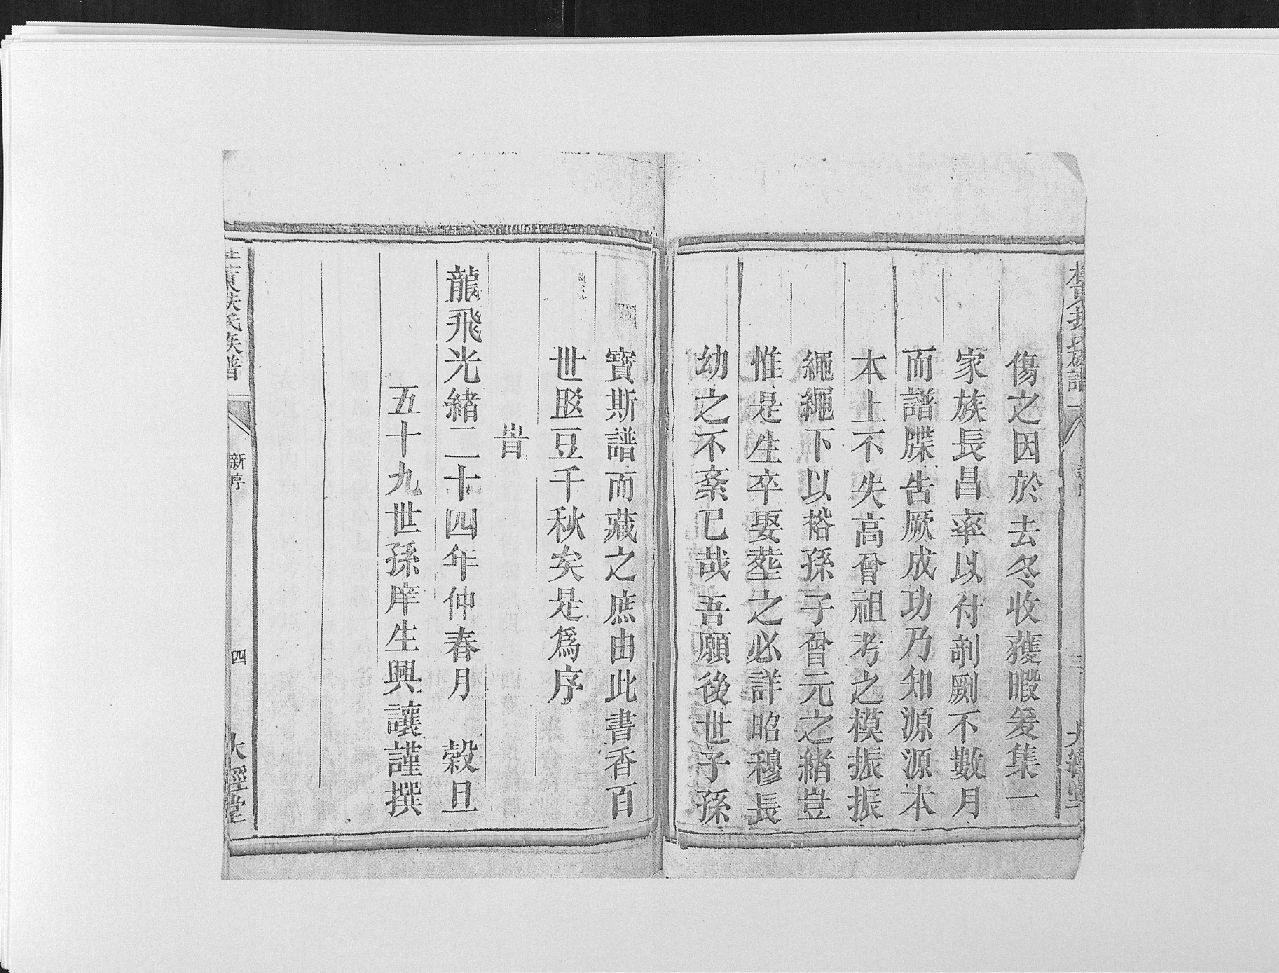 傷之因於去冬收獲暇爰集一
家族長昌率以付剞劂不數月
而譜牒告厥成功乃知源源本
本上不失高曾祖考之模振振
繩繩下以裕孫子曾元之緒豈
惟是生卒娶塟之必詳昭穆長
幼之不紊已哉吾願後世子孫
寶斯譜而藏之庶由此書香百
世俎豆千秋矣是爲序
旹
龍飛光緒二十四年仲春月 穀旦
五十九世孫庠生興讓謹撰
氏族譜
新序
四
大經堂